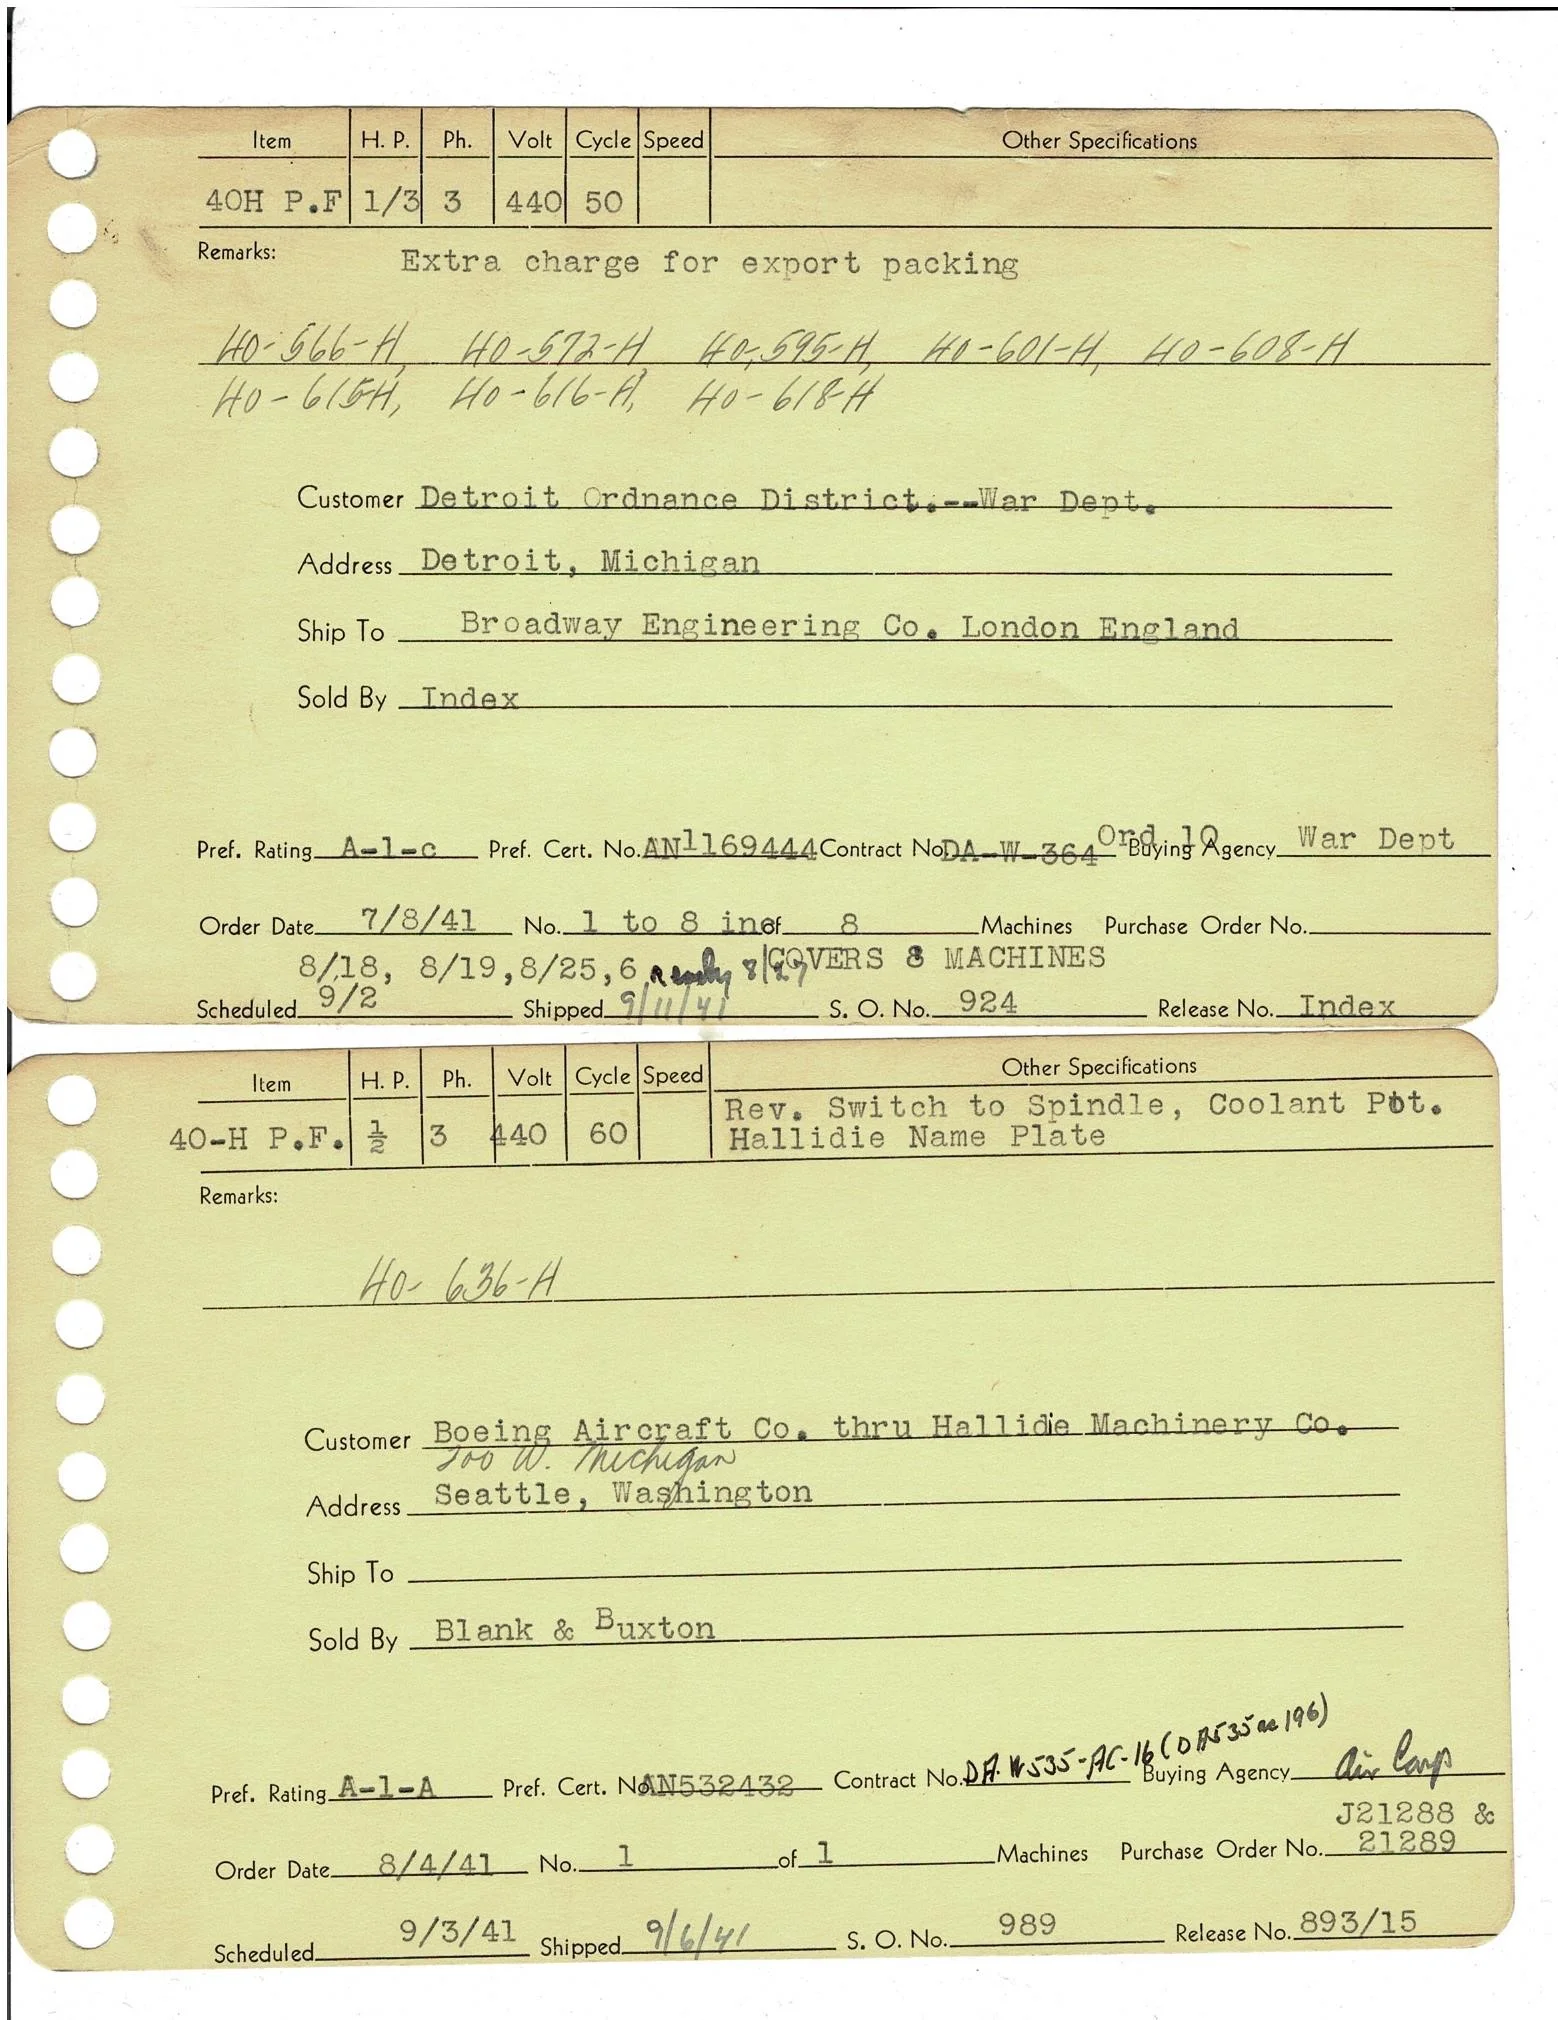 Item H. P. Ph. Volt Cycle Speed Other Specifications
40H P.F 1/3 3 440 50
Remarks: Extra charge for export packing
40-566-H, 40-572-H 40-595-H, 40-601-H, 40-608-H
40-615-H, 40-616-H, 40-618-H
Customer Detroit Ordnance District.--War Dept.
Address Detroit, Michigan
Ship To Broadway Engineering Co. London England
Sold By Index
Pref. Rating A-1-c Pref. Cert. No. AN1169444 Contract No DA-W-364 Ord 10 Buying Agency War Dept
Order Date 7/8/41 No. 1 to 8 inc of 8 Machines Purchase Order No.
8/18, 8/19,8/25,6 Ready 8/27 COVERS 8 MACHINES
Scheduled 9/2 Shipped 9/11/41 S. O. No. 924 Release No. Index
Item H. P. Ph. Volt Cycle Speed Other Specifications
Rev. Switch to Spindle, Coolant Pot.
40-H P.F. ½ 3 440 60 Hallidie Name Plate
Remarks:
40-636-H
Customer Boeing Aircraft Co. thru Hallidie Machinery Co.
200 W. Michigan
Address Seattle, Washington
Ship To
Sold By Blank & Buxton
Pref. Rating A-1-A Pref. Cert. No AN532432 Contract No. DA-W535-AC-16 (DA535ac196) Buying Agency Air Corp
J21288 &
Order Date 8/4/41 No. 1 of 1 Machines Purchase Order No. 21289
Scheduled 9/3/41 Shipped 9/6/41 S. O. No. 989 Release No. 893/15